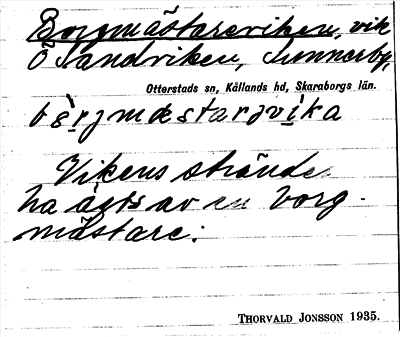 Borgmästareviken, vik
Ö Sandviken, Sunnerby,
Otterstads sn, Kållands hd, Skaraborgs län.
Vikens stränder
ha ägts av en borg-
mästare.
THORVALD JONSSON 1935.